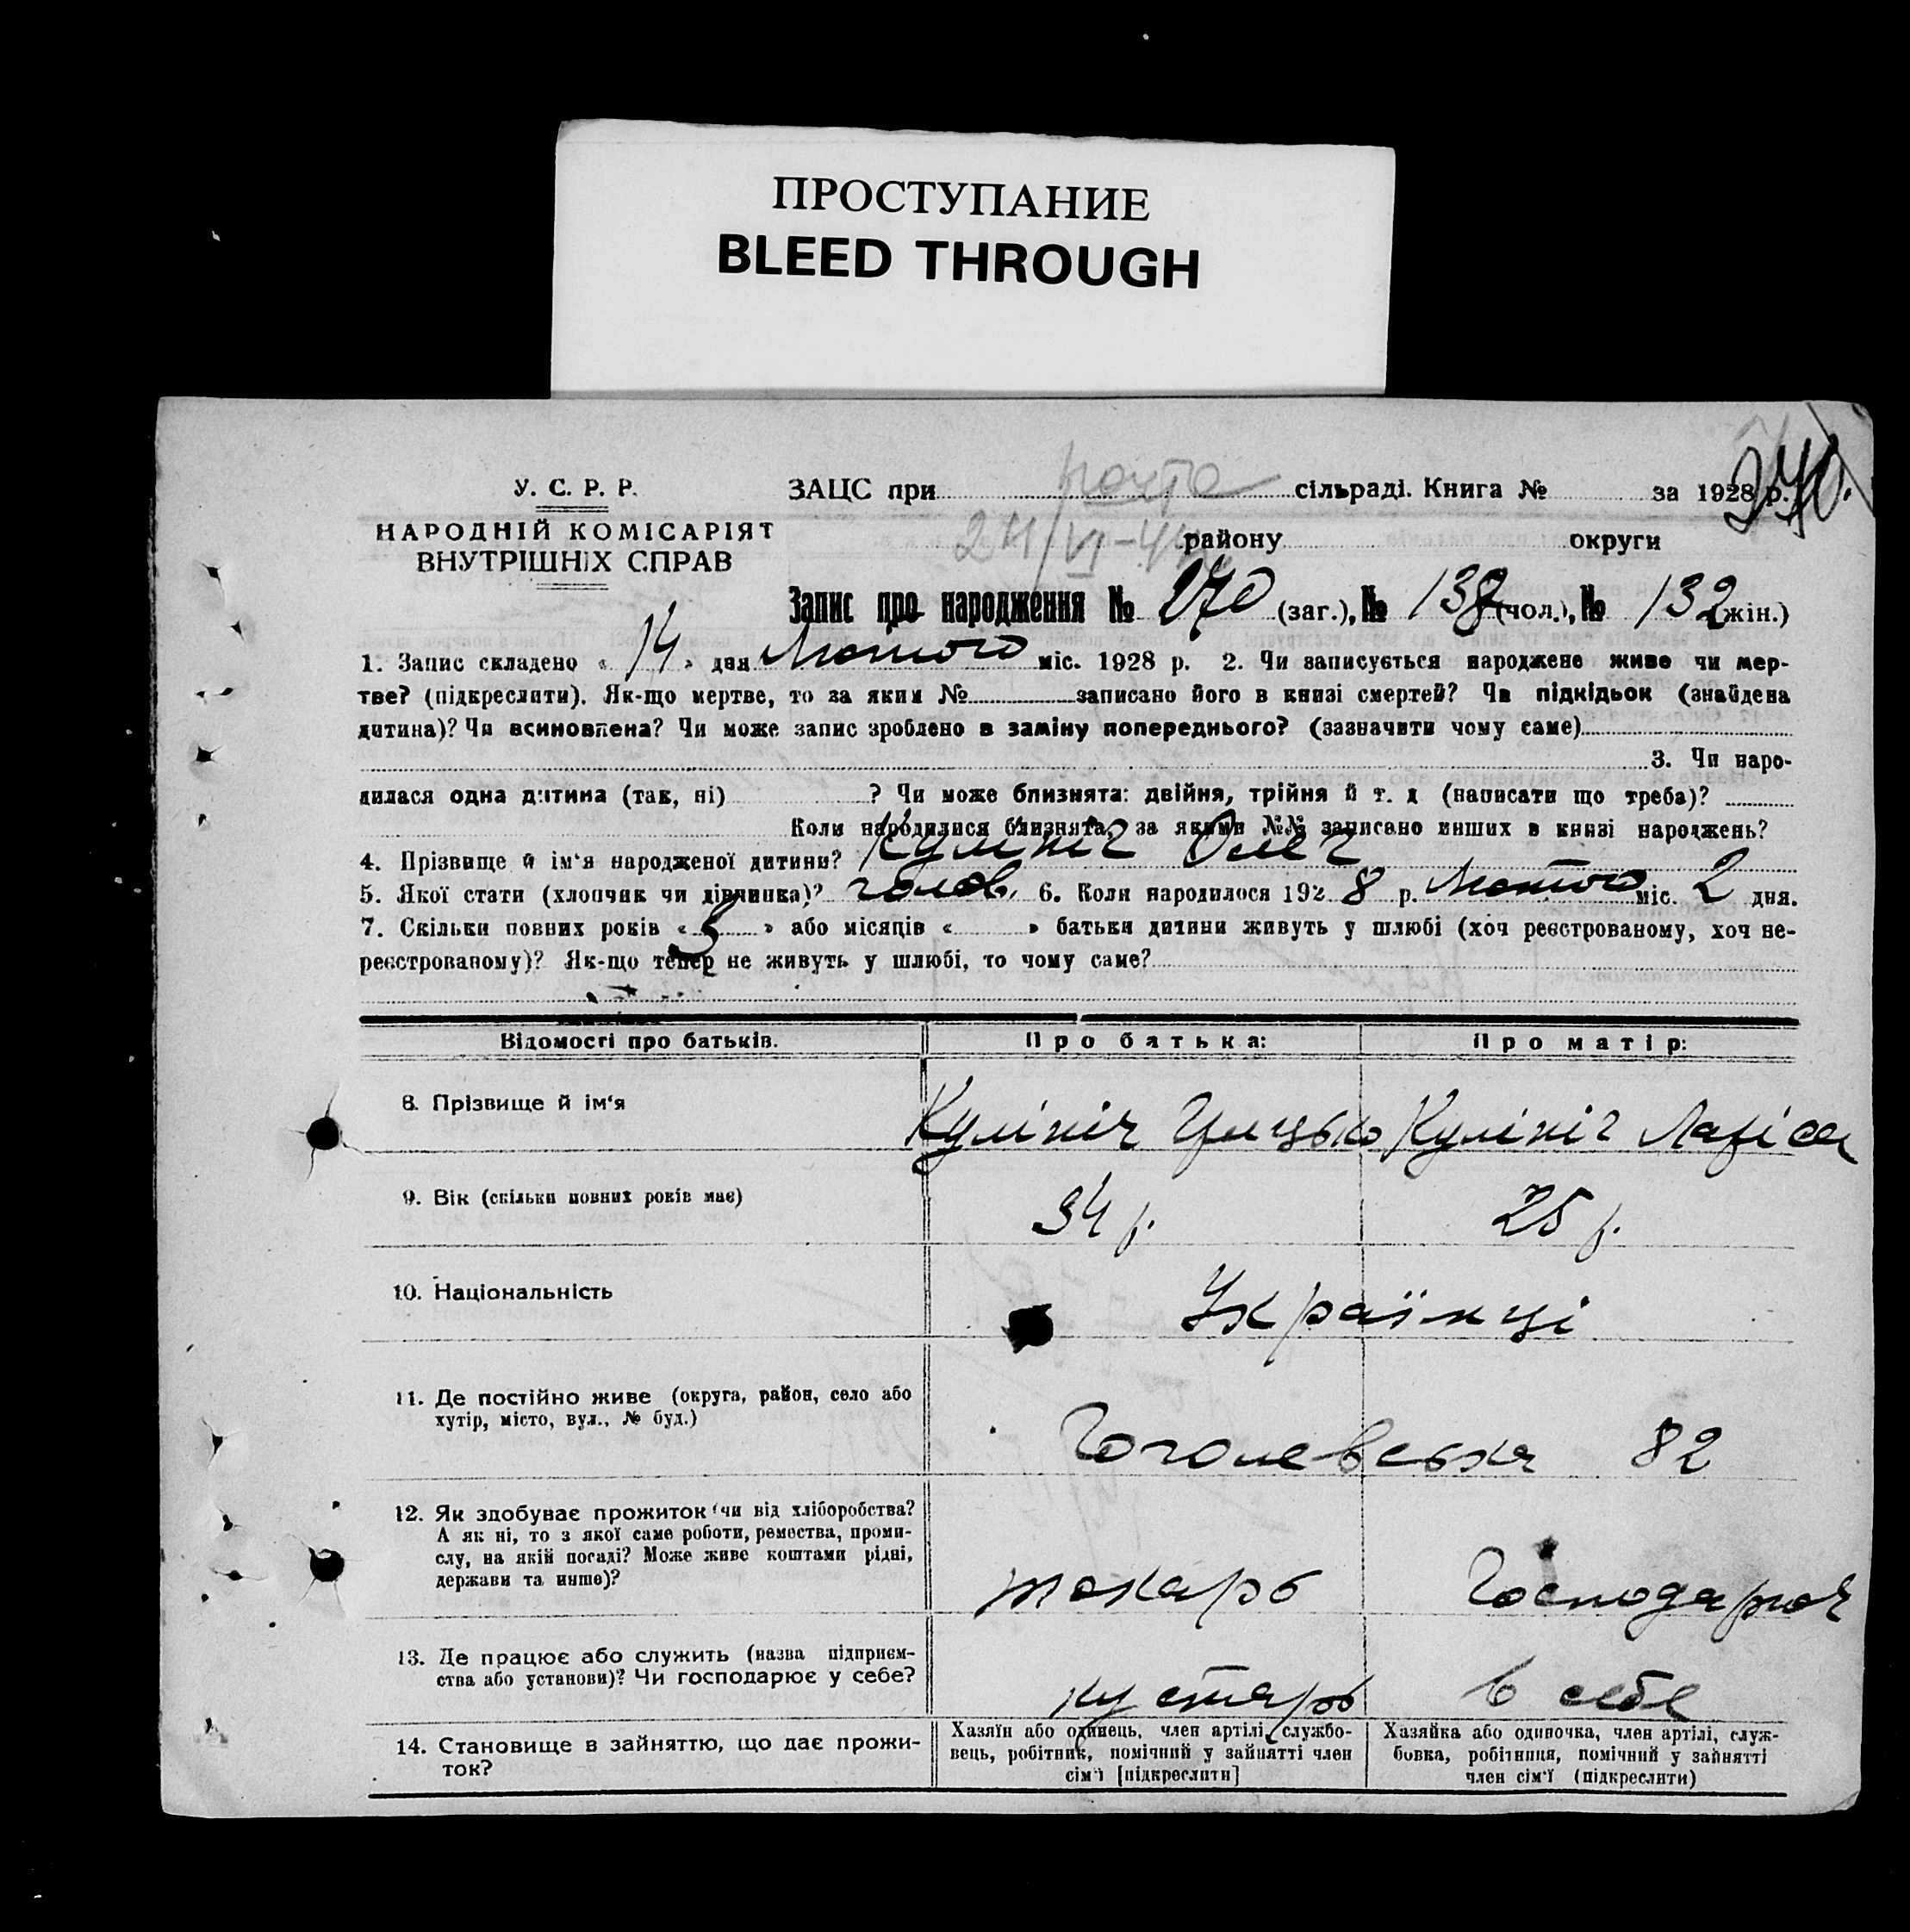 ПРОСТУПАНИЕ
BLEED THROUGH
270.
У. С. Р. Р.
НАРОДНІЙ КОМІСАРІЯТ
ВНУТРІШНІХ СПРАВ
ЗАЦС при почта сільраді. Книга № за 1928 р.
24/VI-44 району округи
Запис про народження № 270 (заг.), № 138 (чол.), № 132 жін.)
1. Запис складено « 14 » дня Лютого міс. 1928 р. 2. Чи записується народжене живе чи мер-
тве? (підкреслити). Як-що мертве, то за яким № записано його в книзі смертей? Чи підкідьок (знайдена
дитина)? Чи всиновлена? Чи може запис зроблено в заміну попереднього? (зазначити чому саме)
3. Чи наро-
дилася одна дитина (так, ні) ? Чи може близнята: двійня, трійня й т. д (написати що треба)?
Коли народилися близнята, за якими №№ записано инших в книзі народжень?
4. Прізвище й ім‘я народженої дитини? Кулініч Олег
5. Якої стати (хлопчик чи дівчинка)? чолов. 6. Коли народилося 1928 р. Лютого міс. 2 дня.
7. Скільки повних років « 5 » або місяців « » батьки дитини живуть у шлюбі (хоч реєстрованому, хоч не-
реєстрованому)? Як-що тепер не живуть у шлюбі, то чому саме?
Відомості про батьків. Про батька: Про матір:
8. Прізвище й ім‘я Кулініч Грицько Кулініч Лариса
9. Вік (скільки повних років має) 34 р. 25 р.
10. Національність Українці
11. Де постійно живе (округа, район, село або
хутір, місто, вул., № буд.)
Гоголевська 82
12. Як здобуває прожиток (чи від хліборобства?
А як ні, то з якої саме роботи, ремества, проми-
слу, на якій посаді? Може живе коштами рідні,
держави та инше)?
токарь Господарює
13. Де працює або служить (назва підприєм-
ства або установи)? Чи господарює у себе?
кустарь в себе
14. Становище в зайняттю, що дає прожи-
ток?
Хазяїн або одинець, член артілі, службо-
вець, робітник, помічний у зайнятті член
сім‘ї [підкреслити]
Хазяйка або одиночка, член артілі, служ-
бовка, робітниця, помічний у зайнятті
член сім‘ї (підкреслити)